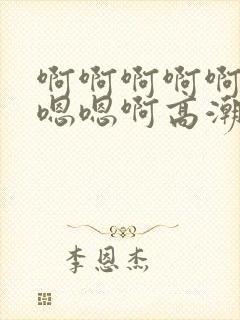 啊啊啊啊啊
嗯嗯啊高潮
李恩杰